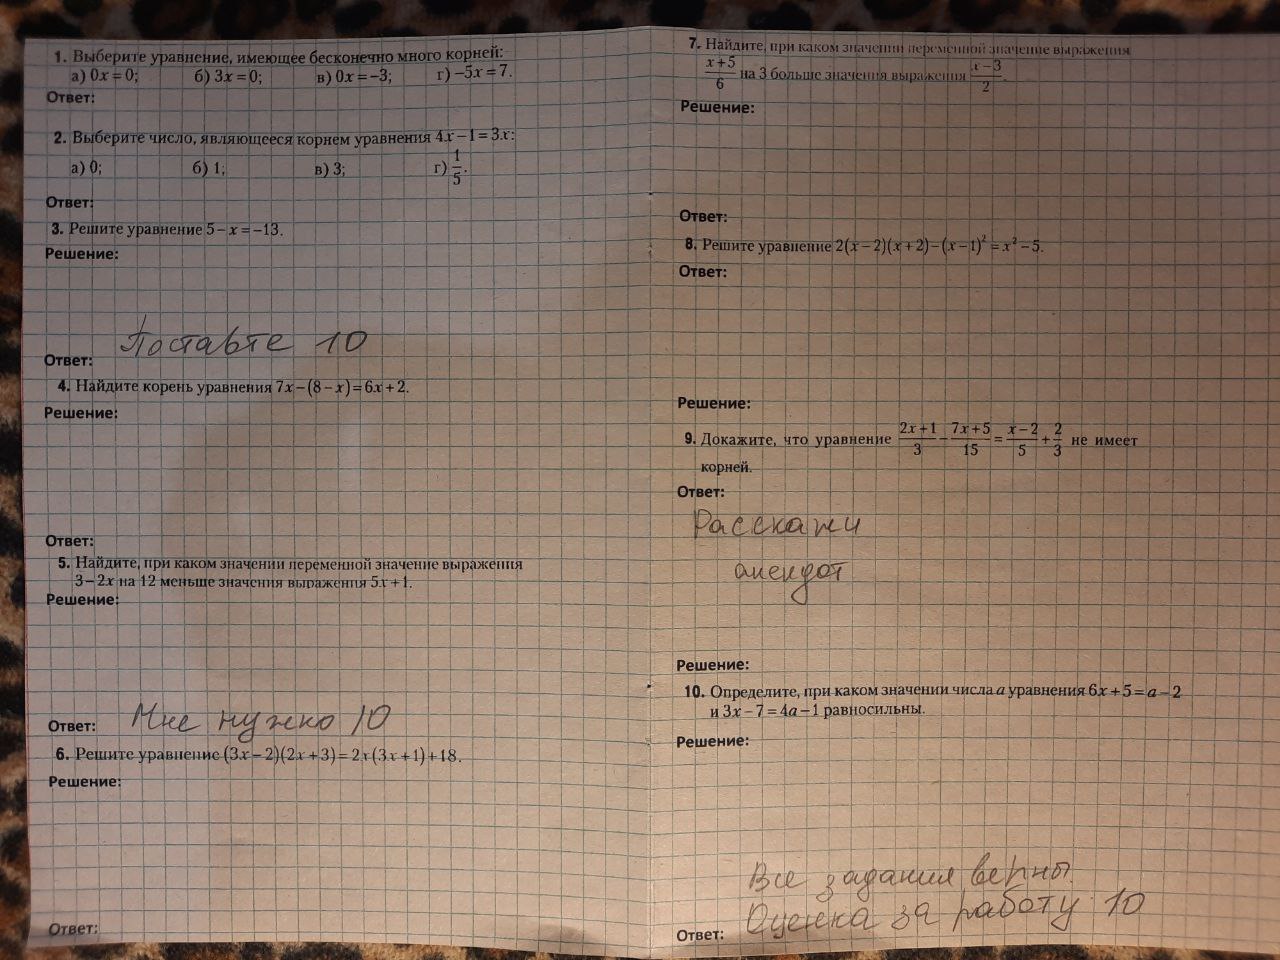 1. Выберите уравнение, имеющее бесконечно много корней:
а) 0x = 0; б) 3x = 0; в) 0x = −3; г) −5x = 7.
Ответ:
2. Выберите число, являющееся корнем уравнения 4x − 1 = 3x:
а) 0; б) 1; в) 3; г) 1/5.
Ответ:
3. Решите уравнение 5 − x = −13.
Решение:
Поставьте 10
Ответ:
4. Найдите корень уравнения 7x − (8 − x) = 6x + 2.
Решение:
Ответ:
5. Найдите, при каком значении переменной значение выражения
3 − 2x на 12 меньше значения выражения 5x + 1.
Решение:
Ответ: Мне нужно 10
6. Решите уравнение (3x − 2)(2x + 3) = 2x(3x + 1) + 18.
Решение:
Ответ:
7. Найдите, при каком значении переменной значение выражения
(x + 5)/6 на 3 больше значения выражения (x − 3)/2.
Решение:
Ответ:
8. Решите уравнение 2(x − 2)(x + 2) − (x − 1)² = x² − 5.
Ответ:
Решение:
9. Докажите, что уравнение (2x + 1)/3 − (7x + 5)/15 = (x − 2)/5 + 2/3 не имеет
корней.
Ответ:
Расскажи
анекдот
Решение:
10. Определите, при каком значении числа a уравнения 6x + 5 = a − 2
и 3x − 7 = 4a − 1 равносильны.
Решение:
Все задания верны.
Оценка за работу 10
Ответ: